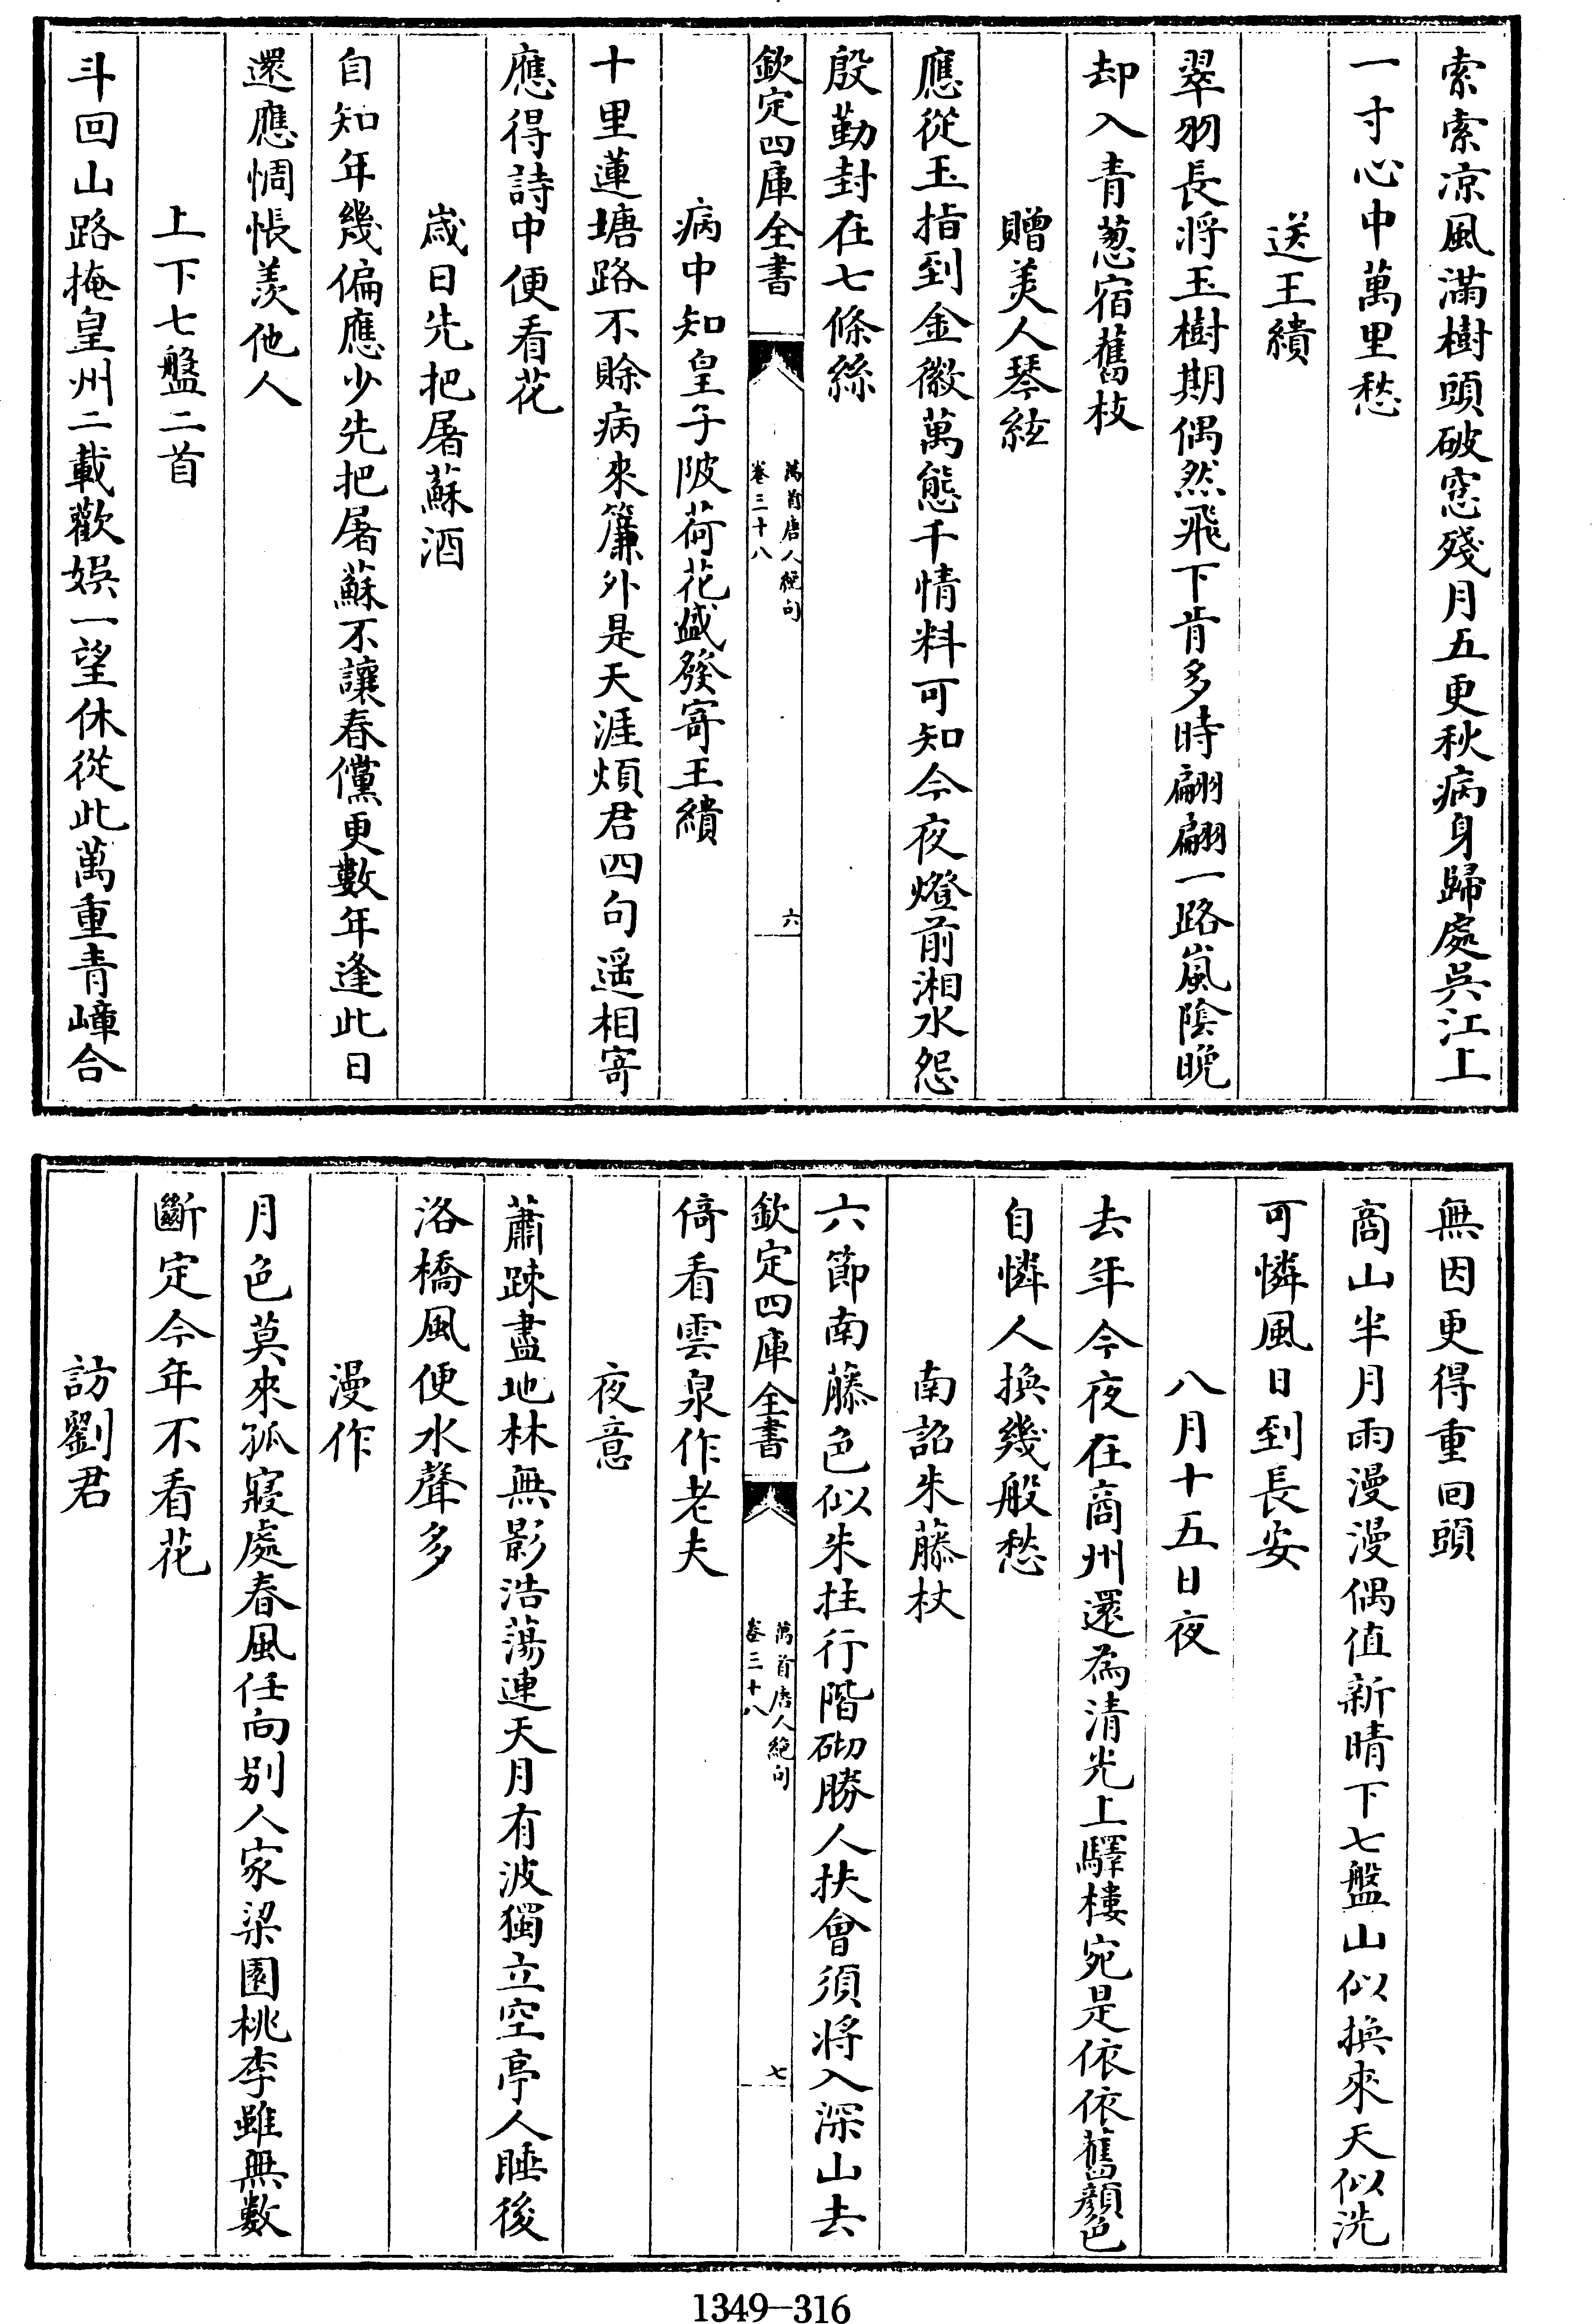 索索凉風滿樹頭破窓殘月五更秋病身歸處吳江上
一寸心中萬里愁
送王繢
翠羽長將玉樹期偶然飛下肯多時翩翩一路嵐陰晚
却入青葱宿舊枝
贈美人琴絃
應從玉指到金徽萬態千情料可知今夜燈前湘水怨
殷勤封在七條絲
欽定四庫全書
萬首唐人絕句
卷三十八
六
病中知皇子陂荷花盛發寄王繢
十里蓮塘路不賒病來簾外是天涯煩君四句遥相寄
應得詩中便看花
歲日先把屠蘇酒
自知年幾偏應少先把屠蘇不讓春儻更數年逢此日
還應惆悵羨他人
上下七盤二首
斗回山路掩皇州二載歡娱一望休從此萬重青嶂合
無因更得重回頭
商山半月雨漫漫偶值新晴下七盤山似換來天似洗
可憐風日到長安
八月十五日夜
去年今夜在商州還為清光上驛樓宛是依依舊顏色
自憐人換幾般愁
南詔朱藤杖
六節南藤色似朱拄行階砌勝人扶會須將入深山去
欽定四庫全書
萬首唐人絕句
卷三十八
七
倚看雲泉作老夫
夜意
蕭踈盡地林無影浩蕩連天月有波獨立空亭人睡後
洛橋風便水聲多
漫作
月色莫來孤寢處春風任向别人家梁園桃李雖無數
斷定今年不看花
訪劉君
1349-316